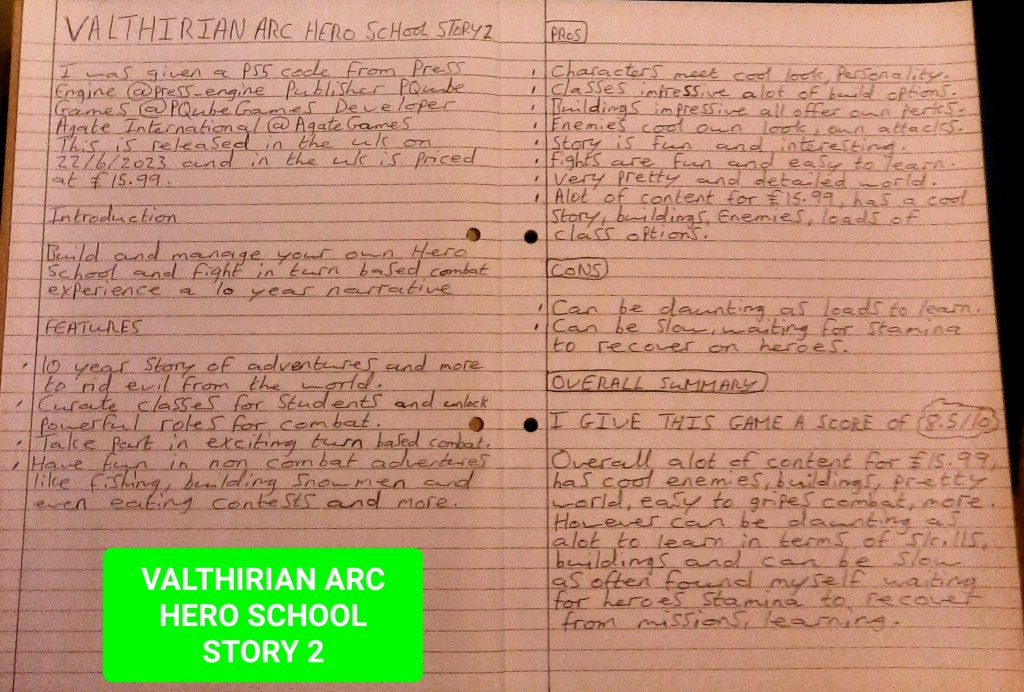 VALTHIRIAN ARC HERO SCHOOL STORY 2
I was given a PS5 code from Press
Engine @press_engine Publisher PQube
Games @PQubeGames Developer
Agate International @AgateGames
This is released in the uk on
22/6/2023 and in the uk is priced
at £15.99.
Introduction
Build and manage your own Hero
School and fight in turn based combat
experience a 10 year narrative
FEATURES
10 year story of adventures and more
to rid evil from the world.
Curate classes for students and unlock
powerful roles for combat.
Take part in exciting turn based combat.
Have fun in non combat adventures
like fishing, building snowmen and
even eating contests and more.
PROS
Characters meet cool look, personality.
Classes impressive alot of build options.
Buildings impressive all offer own perks.
Enemies cool own look, own attacks.
Story is fun and interesting.
Fights are fun and easy to learn.
Very pretty and detailed world.
Alot of content for £15.99, has a cool
Story, buildings, Enemies, loads of
class options.
CONS
Can be daunting as loads to learn.
Can be slow, waiting for stamina
to recover on heroes.
OVERALL SUMMARY
I GIVE THIS GAME A SCORE OF 8.5/10
Overall alot of content for £15.99,
has cool enemies, buildings, pretty
world, easy to gripes combat, more.
However can be daunting as
alot to learn in terms of skills,
buildings and can be slow
as often found myself waiting
for heroes stamina to recover
from missions, learning.
VALTHIRIAN ARC
HERO SCHOOL
STORY 2